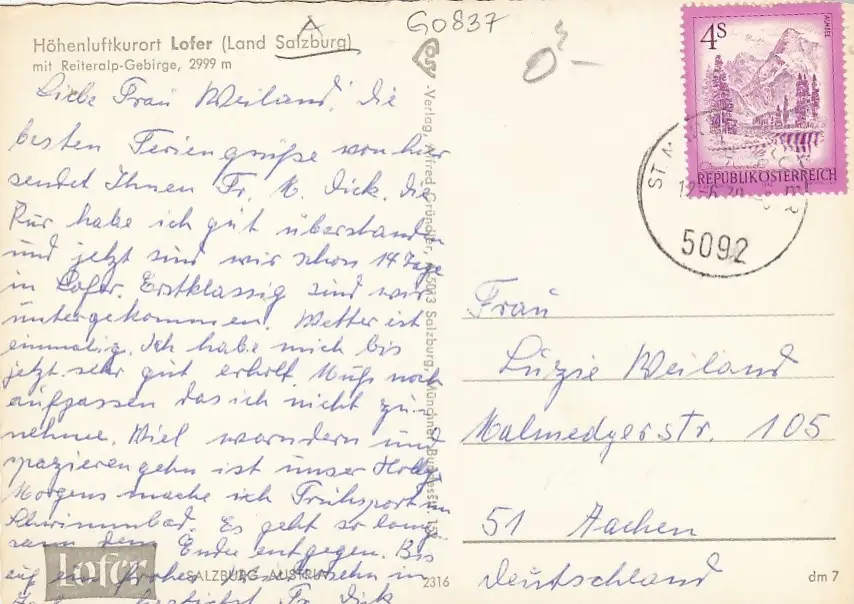 Höhenluftkurort Lofer (Land Salzburg)
mit Reiteralp-Gebirge, 2999 m
Liebe Frau Weiland! Die
besten Feriengrüße von hier
sendet Ihnen Fr. M. Dick. Die
Kur habe ich gut überstanden
und jetzt sind wir schon 14 Tage
in Lofer. Erstklassig sind wir
untergekommen. Wetter ist
einmalig. Ich habe mich bis
jetzt sehr gut erholt. Muß noch
aufpassen das ich nicht zu
nehme. Viel wandern und
spazierengehn ist unser
Morgens mache ich Frühsport im
Schwimmbad. Es geht so lang
sam dem Ende entgegen. Bis
auf ein frohes Wiedersehn in
herzlichst Fr. Dick
Lofer
SALZBURG-AUSTRIA
2316
G0837
-Verlag, Alfred Gründler, 5023 Salzburg,
4S
ALMSEE
REPUBLIK ÖSTERREICH
ST.
5092
Frau
Luzie Weiland
Malmedyerstr. 105
51 Aachen
Deutschland
dm 7